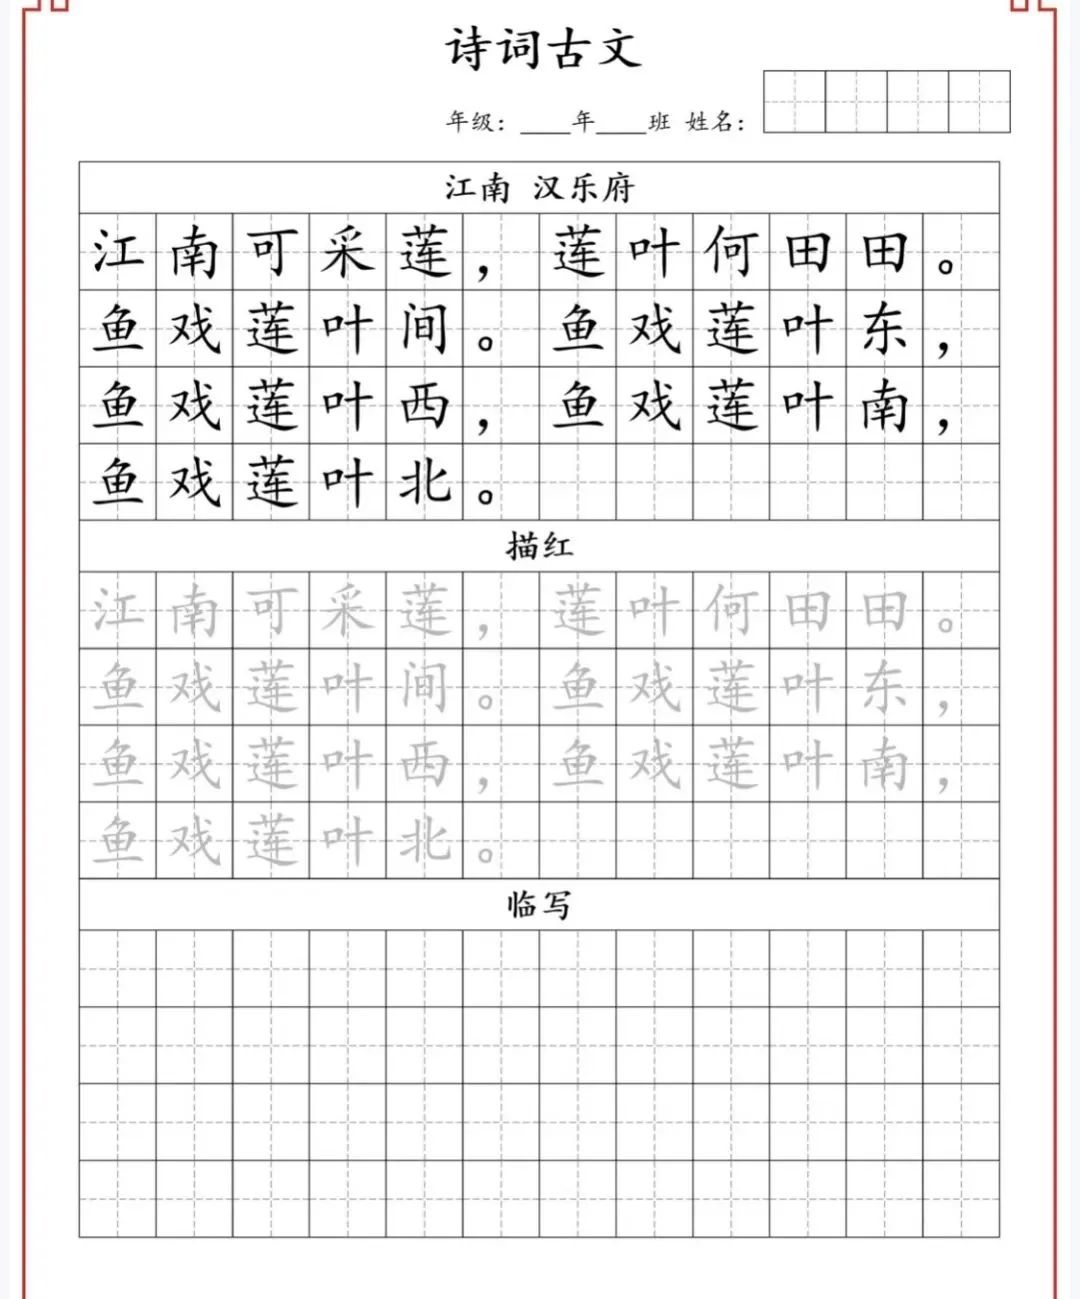 诗词古文
年级：____年____班 姓名：
江南 汉乐府
江南可采莲，莲叶何田田。
鱼戏莲叶间。鱼戏莲叶东，
鱼戏莲叶西，鱼戏莲叶南，
鱼戏莲叶北。
描红
江南可采莲，莲叶何田田。
鱼戏莲叶间。鱼戏莲叶东，
鱼戏莲叶西，鱼戏莲叶南，
鱼戏莲叶北。
临写